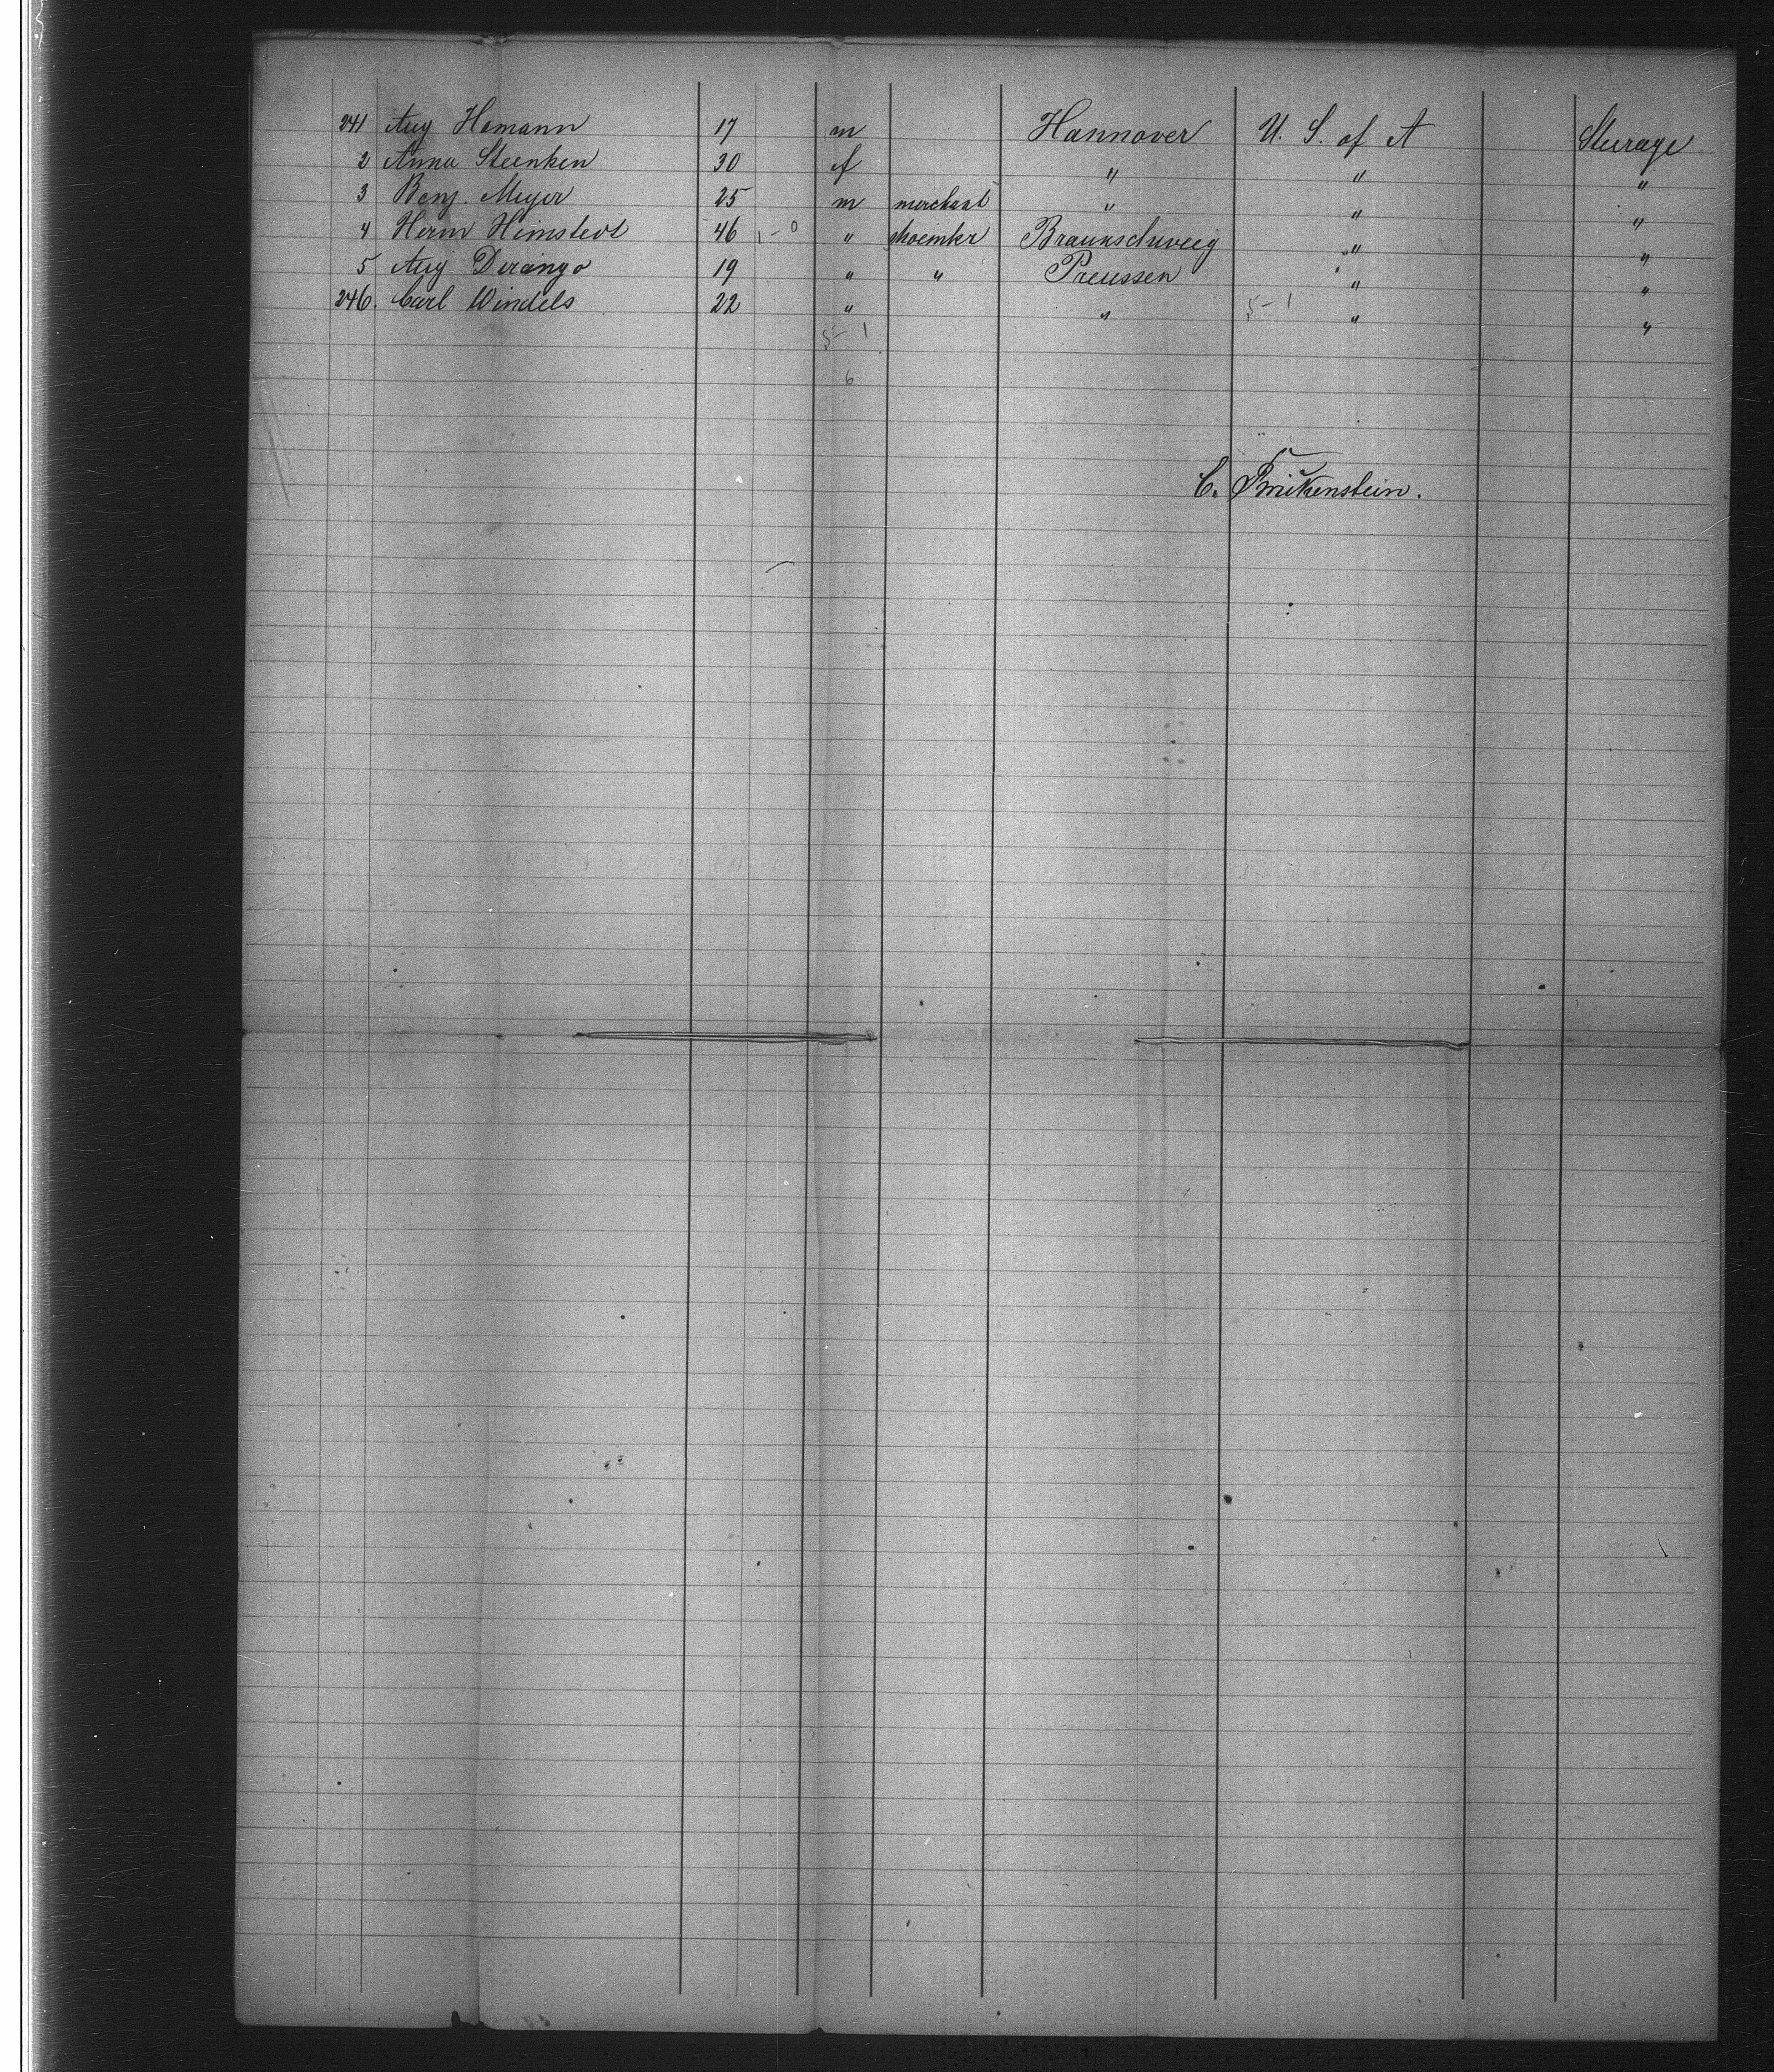 241 Aug Hamann 17 m Hannover U. S. of A Steerage
2 Anna Steenken 30 f " " "
3 Benj. Meyer 25 m merchant " " "
4 Herm Himstedt 46 1-0 " shoemkr Braunschweig " "
5 Aug Derango 19 " " Preussen " "
246. Carl Windels 22 " " 5-1 " "
5-1
6
C.